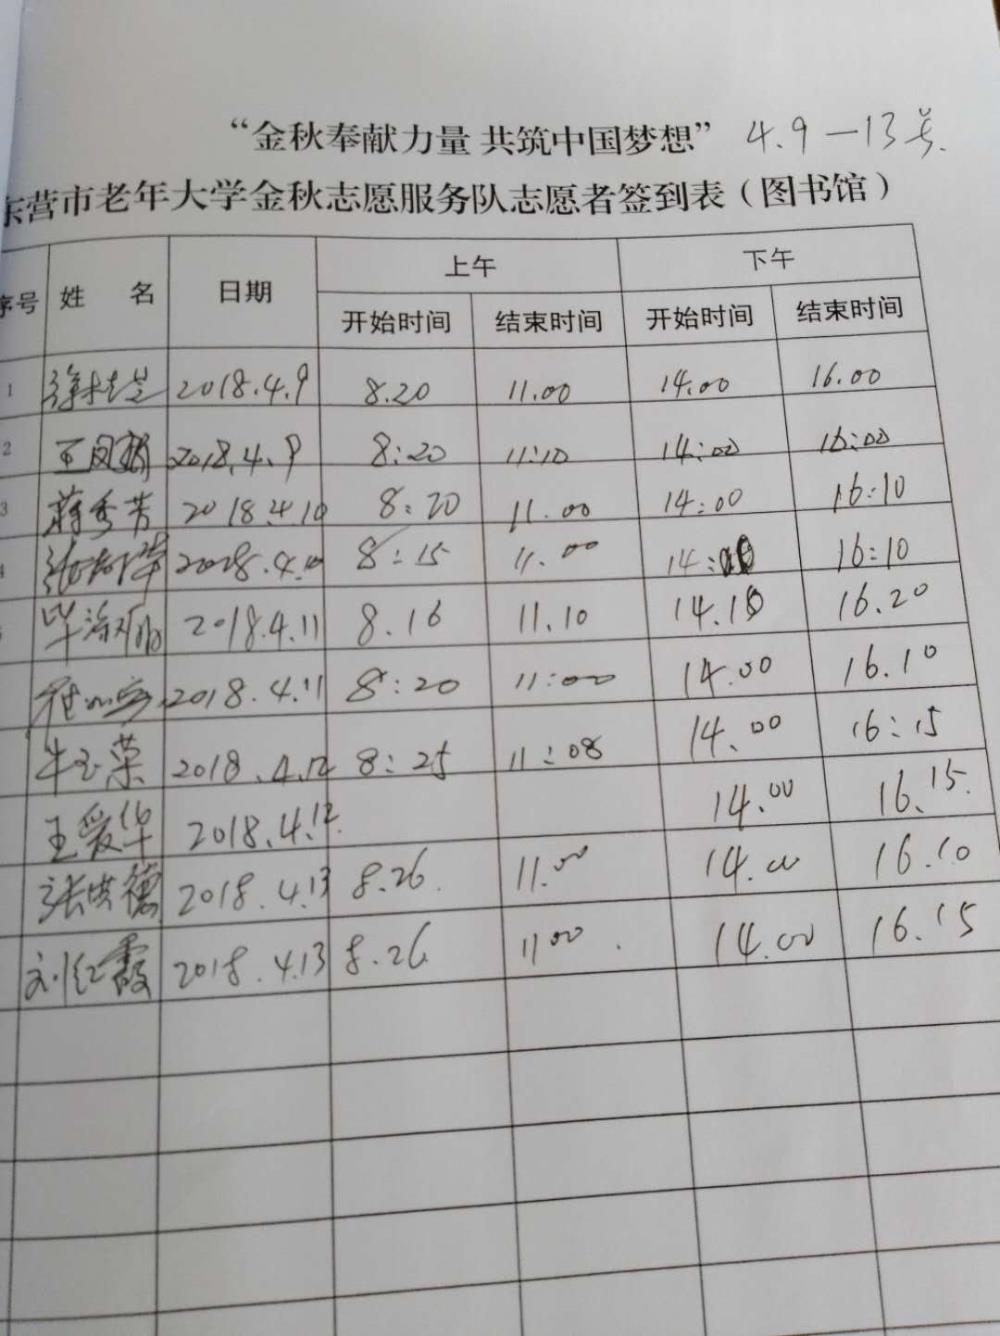 “金秋奉献力量 共筑中国梦想” 4.9—13号.
东营市老年大学金秋志愿服务队志愿者签到表（图书馆）
序号 姓 名 日期 上午 下午
开始时间 结束时间 开始时间 结束时间
1 2018.4.9 8.20 11.00 14.00 16.00
2 王凤娟 2018.4.9 8:20 11:10 14:00 16:00
3 蒋秀芳 2018.4.10 8:20 11.00 14:00 16:10
4 2018.4.10 8:15 11.00 14: 16:10
2018.4.11 8.16 11.10 14.10 16.20
2018.4.11 8:20 11:00 14.00 16.10
牛玉荣 2018.4.12 8:25 11:08 14.00 16:15
王爱华 2018.4.12. 14.00 16.15.
张洪德 2018.4.13 8.26. 11.00 14.00 16.10
刘红霞 2018.4.13 8.26. 1100. 14.00 16.15